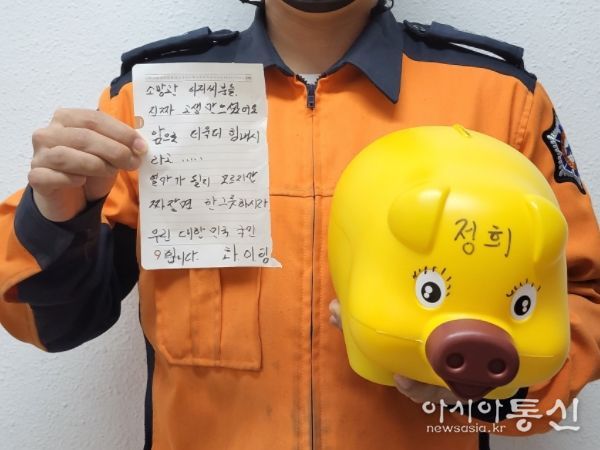 소방관 아저씨분들
진짜 고생 많으셨어요
앞으로 더욱더 힘내시
라고.....
얼마가 될지 모르지만
짜장면 한그릇하시라
우리 대한민국 국민
9합니다. 화이팅
정희
아시아통신
newsasia.kr